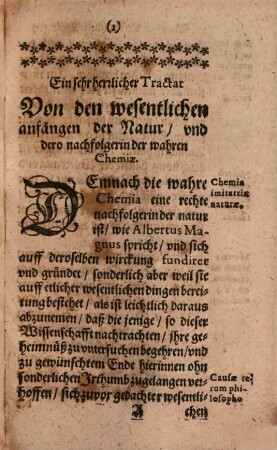 (1)
Ein sehr herrlicher Tractat
Von den wesentlichen
anfängen der Natur / vnd
dero nachfolgerin der wahren
Chemiæ.
DEmnach die wahre
Chemia eine rechte
nachfolgerin der natur
ist / wie Albertus Ma-
gnus spricht / vnd sich
auff deroselben wirckung fundiret
vnd gründet / sonderlich aber weil sie
auff etlicher wesentlichen dingen berei-
tung bestehet / als ist leichtlich daraus
abzunemen / daß die jenige / so dieser
Wissenschafft nachtrachten / jhre ge-
heimnüß zu vntersuchen begehren / vnd
zu gewünschtem Ende hierinnen ohn
sonderlichen Irthumb zugelangen ver-
hoffen / sich zuvor gedachter wesentli-
A chen
Chemia
imitatrix
naturæ.
Causæ re-
rum phi-
losopho